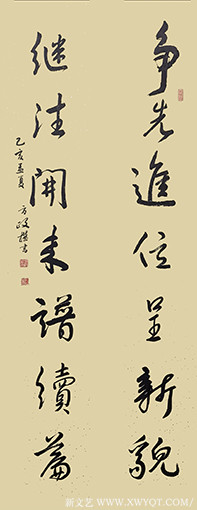 争先進位呈新貌
继往開来譜續篇
乙亥孟夏
方政撰书
新文艺 www.XWYQT.COM